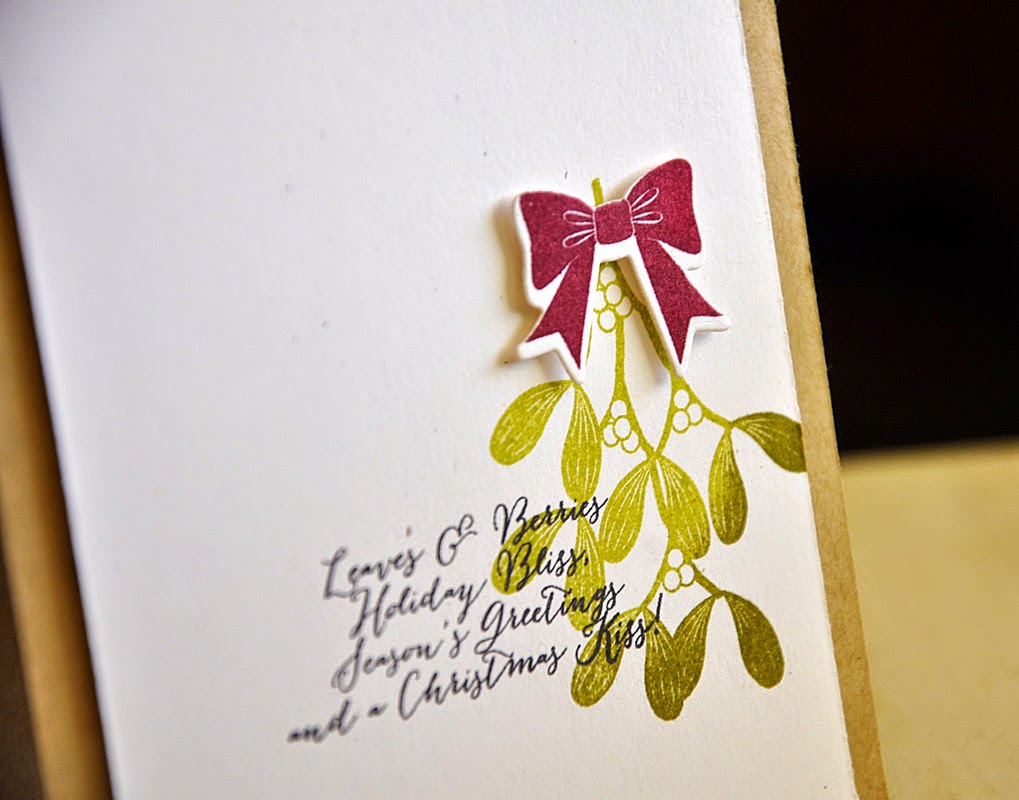 Leaves & Berries
Holiday Bliss,
Season's Greetings
and a Christmas Kiss!